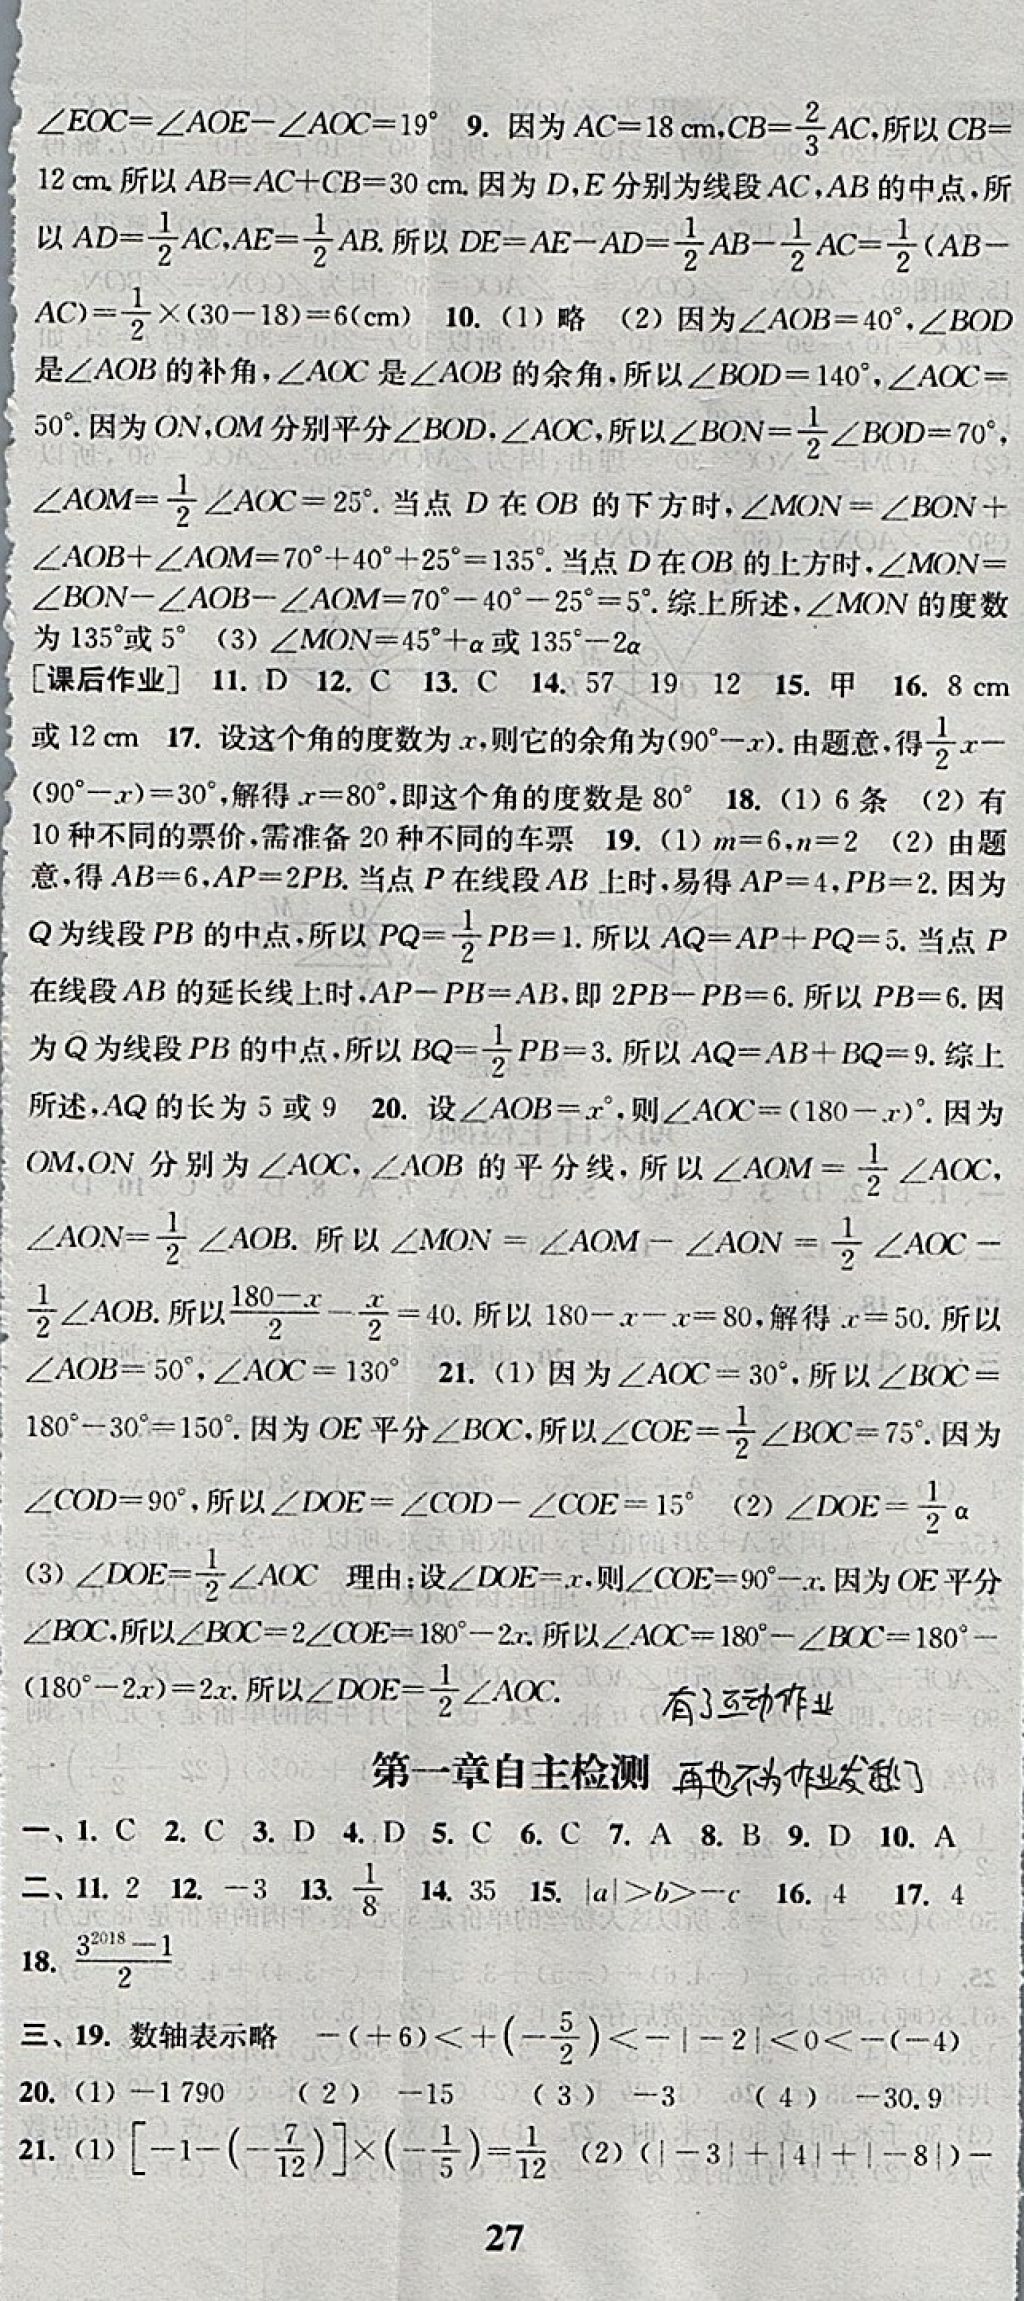 ∠EOC=∠AOE-∠AOC=19° 9. 因为 AC=18 cm,CB=2/3AC,所以 CB=
12 cm. 所以 AB=AC+CB=30 cm. 因为 D,E 分别为线段 AC,AB 的中点,所
以 AD=1/2AC,AE=1/2AB. 所以 DE=AE-AD=1/2AB-1/2AC=1/2(AB-
AC)=1/2×(30-18)=6(cm) 10. (1) 略 (2) 因为∠AOB=40°,∠BOD
是∠AOB 的补角,∠AOC 是∠AOB 的余角,所以∠BOD=140°,∠AOC=
50°. 因为 ON,OM 分别平分∠BOD,∠AOC,所以∠BON=1/2∠BOD=70°,
∠AOM=1/2∠AOC=25°. 当点 D 在 OB 的下方时,∠MON=∠BON+
∠AOB+∠AOM=70°+40°+25°=135°. 当点 D 在 OB 的上方时,∠MON=
∠BON-∠AOB-∠AOM=70°-40°-25°=5°. 综上所述,∠MON 的度数
为 135°或 5° (3) ∠MON=45°+α 或 135°-2α
[课后作业] 11. D 12. C 13. C 14. 57 19 12 15. 甲 16. 8 cm
或 12 cm 17. 设这个角的度数为 x,则它的余角为(90°-x). 由题意,得1/2x-
(90°-x)=30°,解得 x=80°,即这个角的度数是 80° 18. (1) 6 条 (2) 有
10 种不同的票价,需准备 20 种不同的车票 19. (1) m=6,n=2 (2) 由题
意,得 AB=6,AP=2PB. 当点 P 在线段 AB 上时,易得 AP=4,PB=2. 因为
Q 为线段 PB 的中点,所以 PQ=1/2PB=1. 所以 AQ=AP+PQ=5. 当点 P
在线段 AB 的延长线上时,AP-PB=AB,即 2PB-PB=6. 所以 PB=6. 因
为 Q 为线段 PB 的中点,所以 BQ=1/2PB=3. 所以 AQ=AB+BQ=9. 综上
所述,AQ 的长为 5 或 9 20. 设∠AOB=x°,则∠AOC=(180-x)°. 因为
OM,ON 分别为∠AOC,∠AOB 的平分线,所以∠AOM=1/2∠AOC,
∠AON=1/2∠AOB. 所以∠MON=∠AOM-∠AON=1/2∠AOC-
1/2∠AOB. 所以(180-x)/2-x/2=40. 所以 180-x-x=80,解得 x=50. 所以
∠AOB=50°,∠AOC=130° 21. (1) 因为∠AOC=30°,所以∠BOC=
180°-30°=150°. 因为 OE 平分∠BOC,所以∠COE=1/2∠BOC=75°. 因为
∠COD=90°,所以∠DOE=∠COD-∠COE=15° (2) ∠DOE=1/2α
(3) ∠DOE=1/2∠AOC 理由:设∠DOE=x,则∠COE=90°-x. 因为 OE 平分
∠BOC,所以∠BOC=2∠COE=180°-2x. 所以∠AOC=180°-∠BOC=180°-
(180°-2x)=2x. 所以∠DOE=1/2∠AOC.
有了互动作业
第一章自主检测 再也不为作业发愁了
一、1. C 2. C 3. D 4. D 5. C 6. C 7. A 8. B 9. D 10. A
二、11. 2 12. -3 13. 1/8 14. 35 15. |a|>b>-c 16. 4 17. 4
18. (3²⁰¹⁸-1)/2
三、19. 数轴表示略 -(+6)<+(-5/2)<-|-2|<0<-(-4)
20. (1) -1 790 (2) -15 (3) -3 (4) -30.9
21. (1) [-1-(-7/12)]×(-1/5)=1/12 (2) (|-3|+|4|+|-8|)-
27